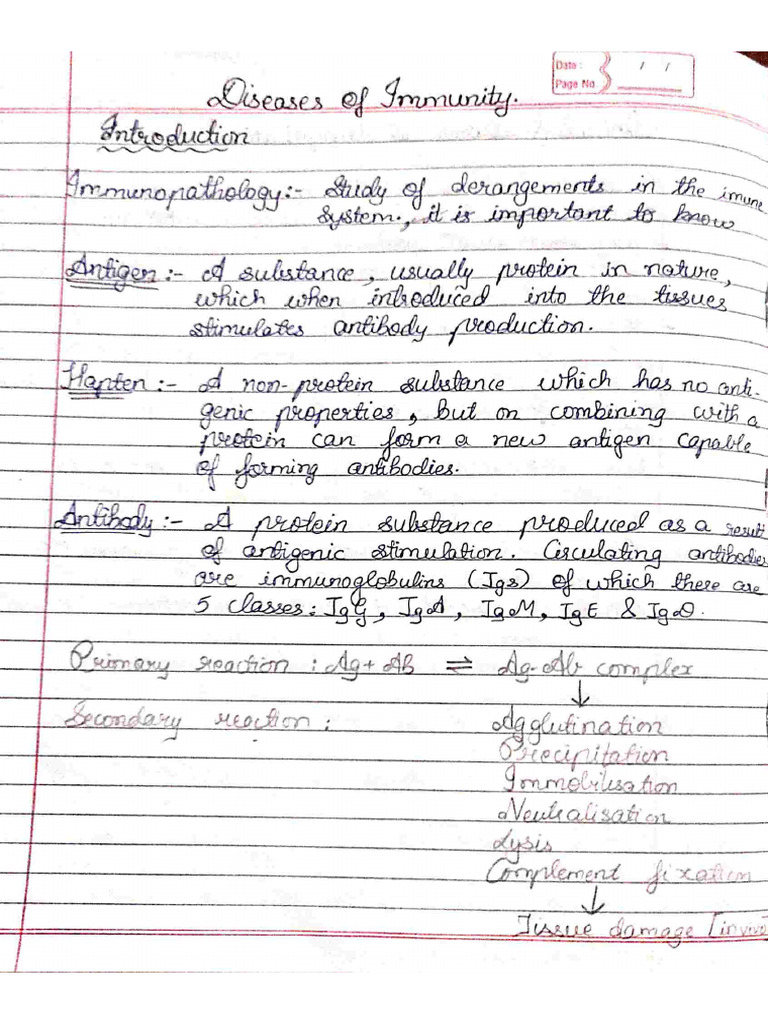 Date : / /
Page No
Diseases of Immunity.
Introduction
Immunopathology:- Study of derangements in the imune
system., it is important to know
Antigen :- A substance, usually protein in nature,
which when introduced into the tissues
stimulates antibody production.
Hapten :- A non-protein substance which has no anti-
genic properties, but on combining with a
protein can form a new antigen capable
of forming antibodies.
Antibody :- A protein substance produced as a result
of antigenic stimulation. Circulating antibodies
are immunoglobulins (Igs) of which there are
5 classes: IgG, IgA, IgM, IgE & IgD.
Primary reaction : Ag+ AB ⇌ Ag-Ab complex
↓
Secondary reaction : Agglutination
Precipitation
Immobilisation
Neutralisation
Lysis
Complement fixation
↓
Tissue damage [invivo